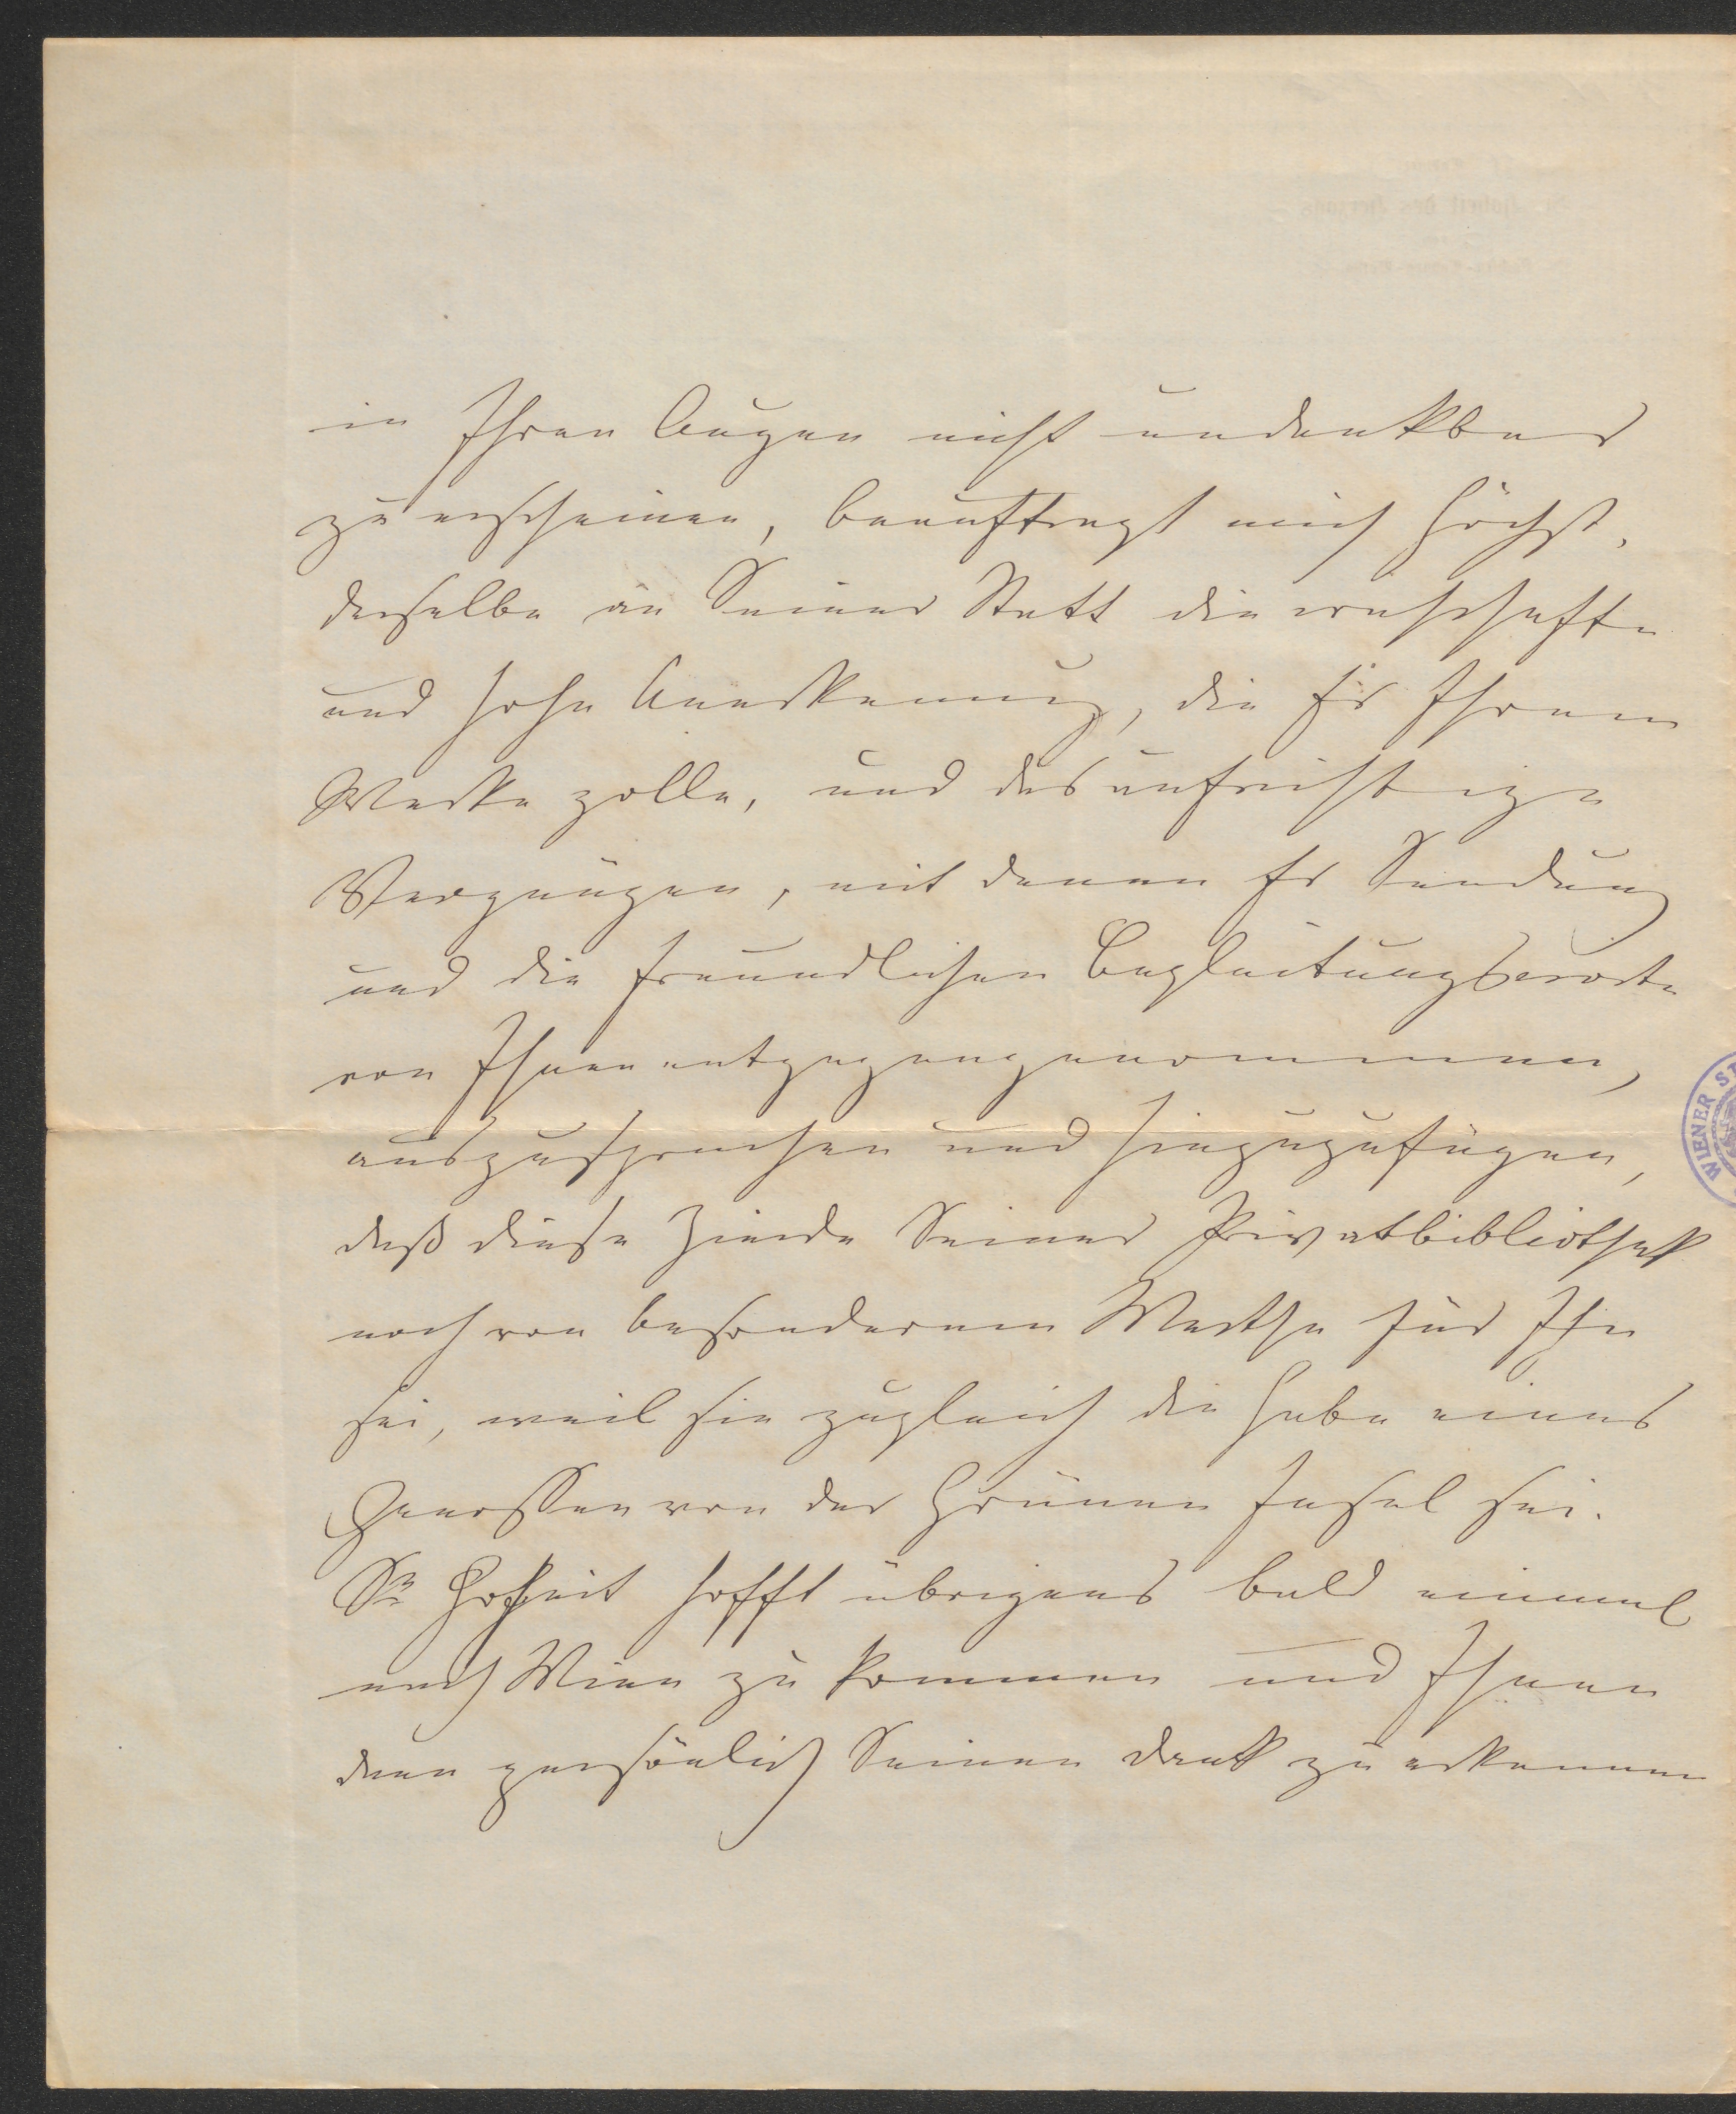 in Ihren Augen nicht undankbar
zu erscheinen, beauftragt mich Höchst-
derselbe an Seiner Statt die
und hohe Anerkennung, die Er Ihrem
Werke zolle, und das aufrichtige
Vergnügen, mit denen Er Sendung
und die freundlichen Begleitungsworte
von Ihnen entgegengenommen,
auszusprechen und hinzuzufügen,
daß diese Zierde Seiner Privatbibliothek
noch von besonderem Werthe für Ihn
sei, weil sie zugleich die Gabe eines
Genossen von der Grünen Insel sei.
Sr Hoheit hofft übrigens bald einmal
nach Wien zu kommen und Ihnen
dann persönlich Seinen Dank zu erkennen
WIENER